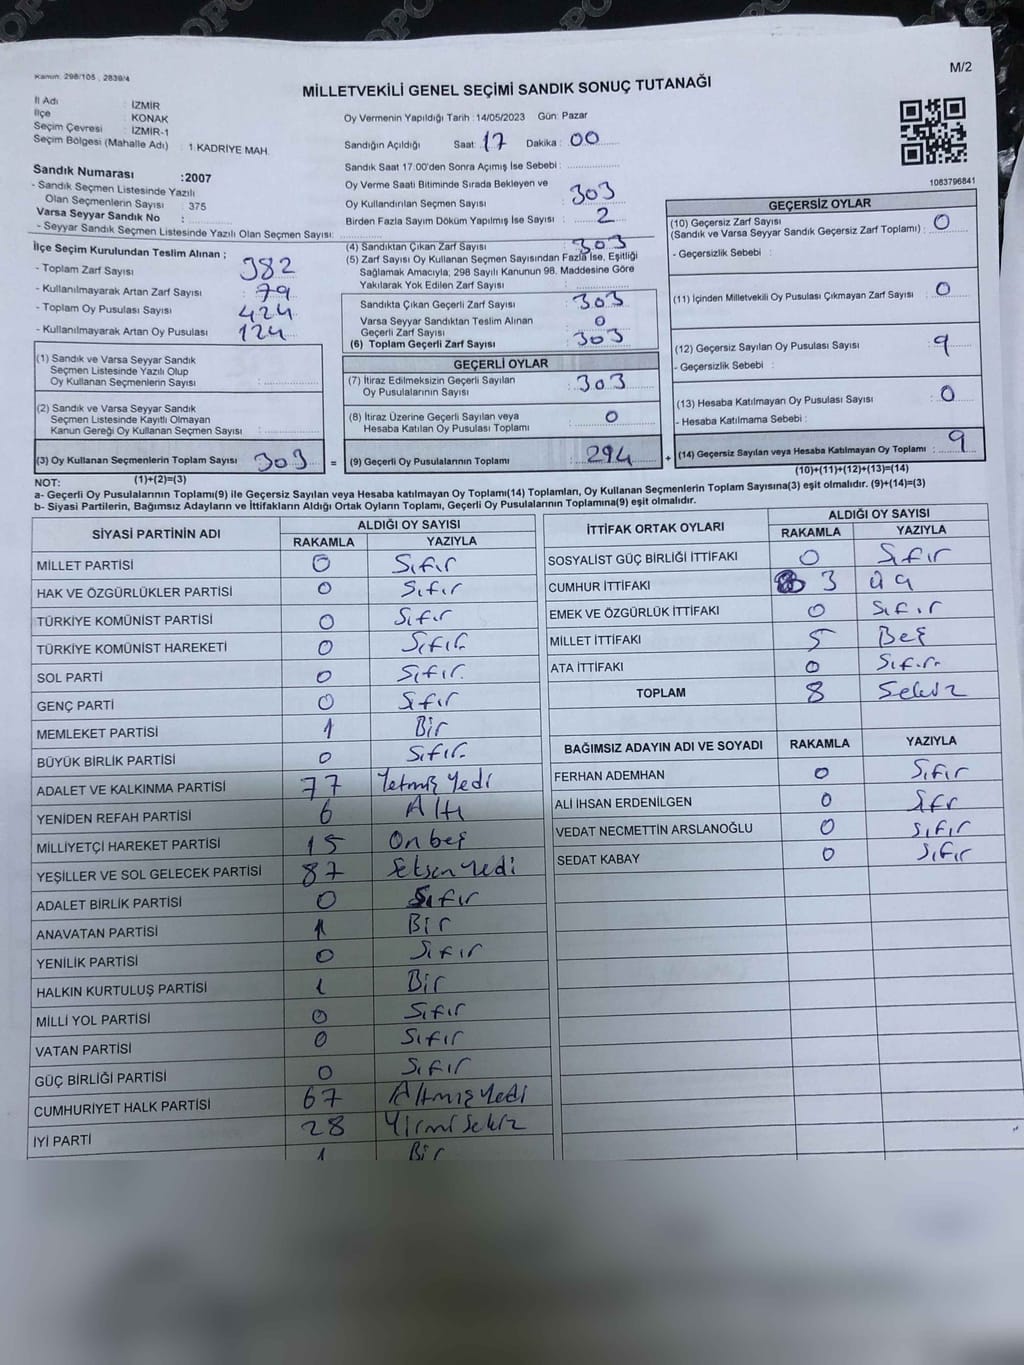 M/2
Kanun: 298/105 , 2839/4
MİLLETVEKİLİ GENEL SEÇİMİ SANDIK SONUÇ TUTANAĞI
İl Adı : İZMİR
İlçe : KONAK
Seçim Çevresi : İZMİR-1
Seçim Bölgesi (Mahalle Adı) : 1.KADRİYE MAH.
Oy Vermenin Yapıldığı Tarih : 14/05/2023 Gün: Pazar
Sandığın Açıldığı Saat: 17 Dakika : 00
Sandık Saat 17:00'den Sonra Açımış İse Sebebi :
Oy Verme Saati Bitiminde Sırada Bekleyen ve
Oy Kullandırılan Seçmen Sayısı : 303
Birden Fazla Sayım Döküm Yapılmış İse Sayısı : 2
1083796841
Sandık Numarası :2007
- Sandık Seçmen Listesinde Yazılı
Olan Seçmenlerin Sayısı : 375
Varsa Seyyar Sandık No :
- Seyyar Sandık Seçmen Listesinde Yazılı Olan Seçmen Sayısı:
İlçe Seçim Kurulundan Teslim Alınan ;
- Toplam Zarf Sayısı : 382
- Kullanılmayarak Artan Zarf Sayısı : 79
- Toplam Oy Pusulası Sayısı : 424
- Kullanılmayarak Artan Oy Pusulası : 124
(1) Sandık ve Varsa Seyyar Sandık
Seçmen Listesinde Yazılı Olup
Oy Kullanan Seçmenlerin Sayısı :
(2) Sandık ve Varsa Seyyar Sandık
Seçmen Listesinde Kayıtlı Olmayan
Kanun Gereği Oy Kullanan Seçmen Sayısı :
(3) Oy Kullanan Seçmenlerin Toplam Sayısı : 303 =
(1)+(2)=(3)
(4) Sandıktan Çıkan Zarf Sayısı : 303
(5) Zarf Sayısı Oy Kullanan Seçmen Sayısından Fazla İse, Eşitliği
Sağlamak Amacıyla, 298 Sayılı Kanunun 98. Maddesine Göre
Yakılarak Yok Edilen Zarf Sayısı :
Sandıkta Çıkan Geçerli Zarf Sayısı : 303
Varsa Seyyar Sandıktan Teslim Alınan
Geçerli Zarf Sayısı : 0
(6) Toplam Geçerli Zarf Sayısı : 303
GEÇERLİ OYLAR
(7) İtiraz Edilmeksizin Geçerli Sayılan
Oy Pusulalarının Sayısı : 303
(8) İtiraz Üzerine Geçerli Sayılan veya
Hesaba Katılan Oy Pusulası Toplamı : 0
(9) Geçerli Oy Pusulalarının Toplamı : 294 +
GEÇERSİZ OYLAR
(10) Geçersiz Zarf Sayısı
(Sandık ve Varsa Seyyar Sandık Geçersiz Zarf Toplamı) : 0
- Geçersizlik Sebebi :
(11) İçinden Milletvekili Oy Pusulası Çıkmayan Zarf Sayısı : 0
(12) Geçersiz Sayılan Oy Pusulası Sayısı : 9
- Geçersizlik Sebebi :
(13) Hesaba Katılmayan Oy Pusulası Sayısı : 0
- Hesaba Katılmama Sebebi :
(14) Geçersiz Sayılan veya Hesaba Katılmayan Oy Toplamı : 9
(10)+(11)+(12)+(13)=(14)
NOT:
a- Geçerli Oy Pusulalarının Toplamı(9) ile Geçersiz Sayılan veya Hesaba katılmayan Oy Toplamı(14) Toplamları, Oy Kullanan Seçmenlerin Toplam Sayısına(3) eşit olmalıdır. (9)+(14)=(3)
b- Siyasi Partilerin, Bağımsız Adayların ve İttifakların Aldığı Ortak Oyların Toplamı, Geçerli Oy Pusulalarının Toplamına(9) eşit olmalıdır.
SİYASİ PARTİNİN ADI ALDIĞI OY SAYISI
RAKAMLA YAZIYLA
MİLLET PARTİSİ 0 Sıfır
HAK VE ÖZGÜRLÜKLER PARTİSİ 0 Sıfır
TÜRKİYE KOMÜNİST PARTİSİ 0 Sıfır
TÜRKİYE KOMÜNİST HAREKETİ 0 Sıfır
SOL PARTİ 0 Sıfır
GENÇ PARTİ 0 Sıfır
MEMLEKET PARTİSİ 1 Bir
BÜYÜK BİRLİK PARTİSİ 0 Sıfır
ADALET VE KALKINMA PARTİSİ 77 Yetmiş Yedi
YENİDEN REFAH PARTİSİ 6 Altı
MİLLİYETÇİ HAREKET PARTİSİ 15 On beş
YEŞİLLER VE SOL GELECEK PARTİSİ 87 Seksen Yedi
ADALET BİRLİK PARTİSİ 0 Sıfır
ANAVATAN PARTİSİ 1 Bir
YENİLİK PARTİSİ 0 Sıfır
HALKIN KURTULUŞ PARTİSİ 1 Bir
MİLLİ YOL PARTİSİ 0 Sıfır
VATAN PARTİSİ 0 Sıfır
GÜÇ BİRLİĞİ PARTİSİ 0 Sıfır
CUMHURİYET HALK PARTİSİ 67 Altmış Yedi
İYİ PARTİ 28 Yirmi Sekiz
1 Bir
İTTİFAK ORTAK OYLARI ALDIĞI OY SAYISI
RAKAMLA YAZIYLA
SOSYALİST GÜÇ BİRLİĞİ İTTİFAKI 0 Sıfır
CUMHUR İTTİFAKI 3 Üç
EMEK VE ÖZGÜRLÜK İTTİFAKI 0 Sıfır
MİLLET İTTİFAKI 5 Beş
ATA İTTİFAKI 0 Sıfır
TOPLAM 8 Sekiz
BAĞIMSIZ ADAYIN ADI VE SOYADI RAKAMLA YAZIYLA
FERHAN ADEMHAN 0 Sıfır
ALİ İHSAN ERDENİLGEN 0 Sıfr
VEDAT NECMETTİN ARSLANOĞLU 0 Sıfır
SEDAT KABAY 0 Sıfır